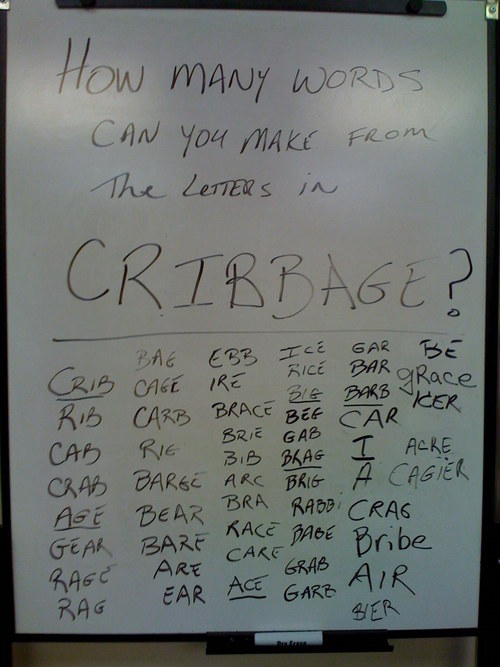 HOW MANY WORDS
CAN YOU MAKE FROM
The LETTERS in
CRIBBAGE?
CRIB
RIB
CAB
CRAB
AGE
GEAR
RAGE
RAG
BAG
CAGE
CARB
RIG
BARGE
BEAR
BARE
ARE
EAR
EBB
IRE
BRACE
BRIE
BIB
ARC
BRA
RACE
CARE
ACE
ICE
RICE
BIG
BEG
GAB
BRAG
BRIG
RABBi
BABE
GRAB
GARB
GAR
BAR
BARB
CAR
I
A
CRAG
Bribe
AIR
BE
gRace
ACRE
CAGIER
Dry Erase